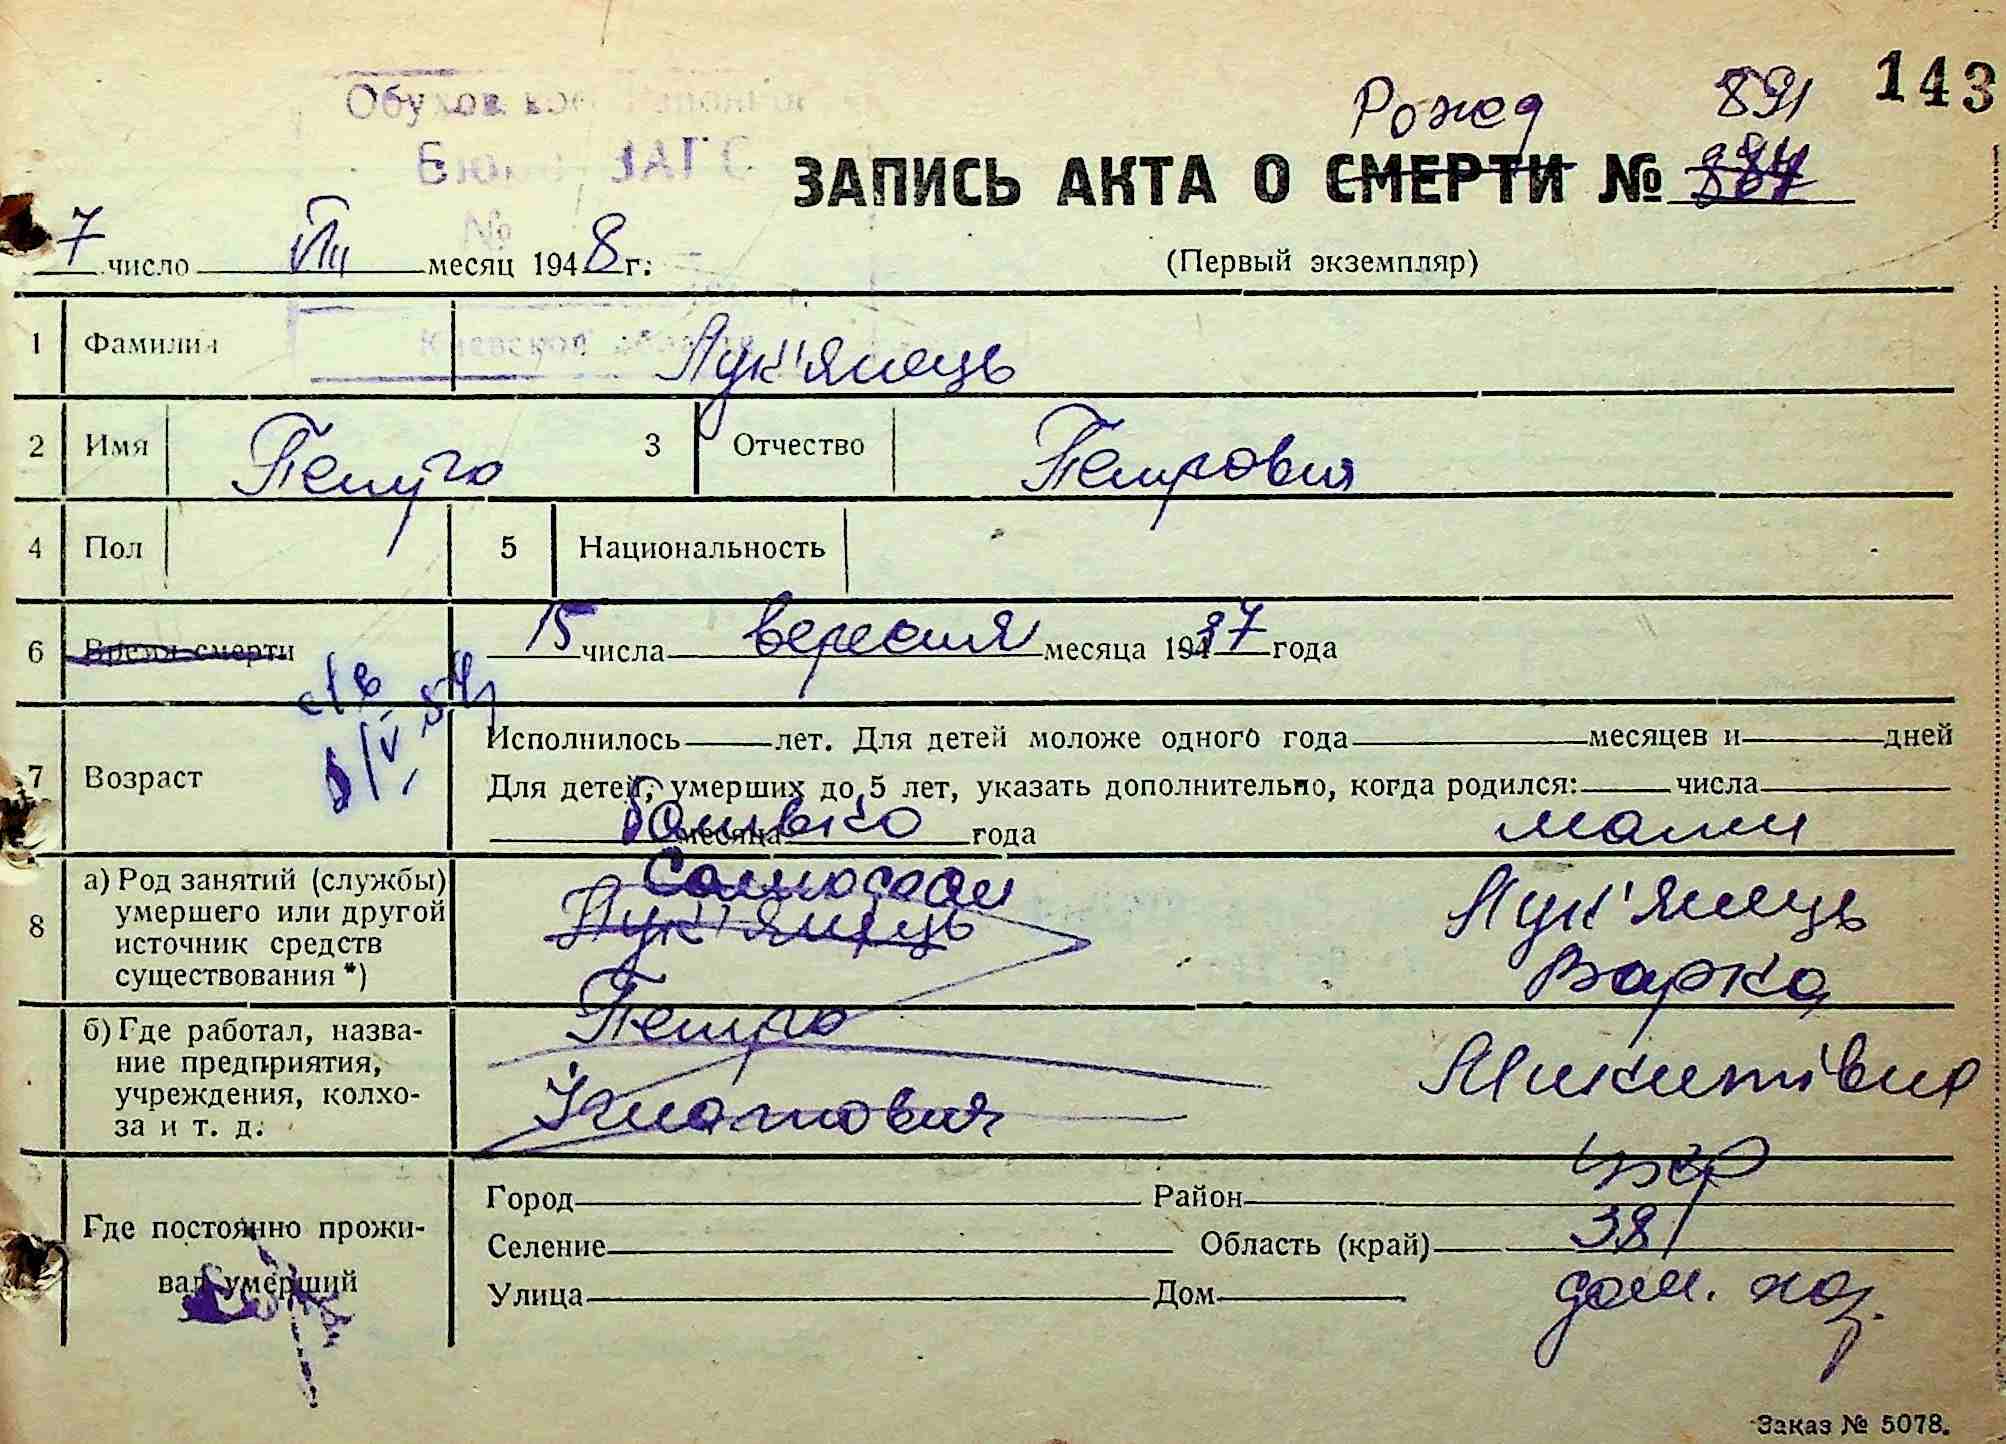 143
Рожд 891
ЗАПИСЬ АКТА О СМЕРТИ №
Обухов
ЗАГС
№
7 число VIII месяц 1948 г.
(Первый экземпляр)
Киевской
1 Фамилия Лук'янець
2 Имя Петро 3 Отчество Петрович
4 Пол 5 Национальность
6 Время смерти 15 числа вересня месяца 1937 года
с/в
7 Возраст
Исполнилось лет. Для детей моложе одного года месяцев и дней
Для детей, умерших до 5 лет, указать дополнительно, когда родился: числа
месяца года
Батько мати
8 а) Род занятий (службы)
умершего или другой
источник средств
существования *)
Самосов
Лук'янець Лук'янець
Варка
б) Где работал, назва-
ние предприятия,
учреждения, колхо-
за и т. д.
Петро
Ігнатович Микитівна
укр
Где постоянно прожи-
вал умерший
Город Район
Селение Область (край) 38
Улица Дом дом. хоз.
Заказ № 5078.